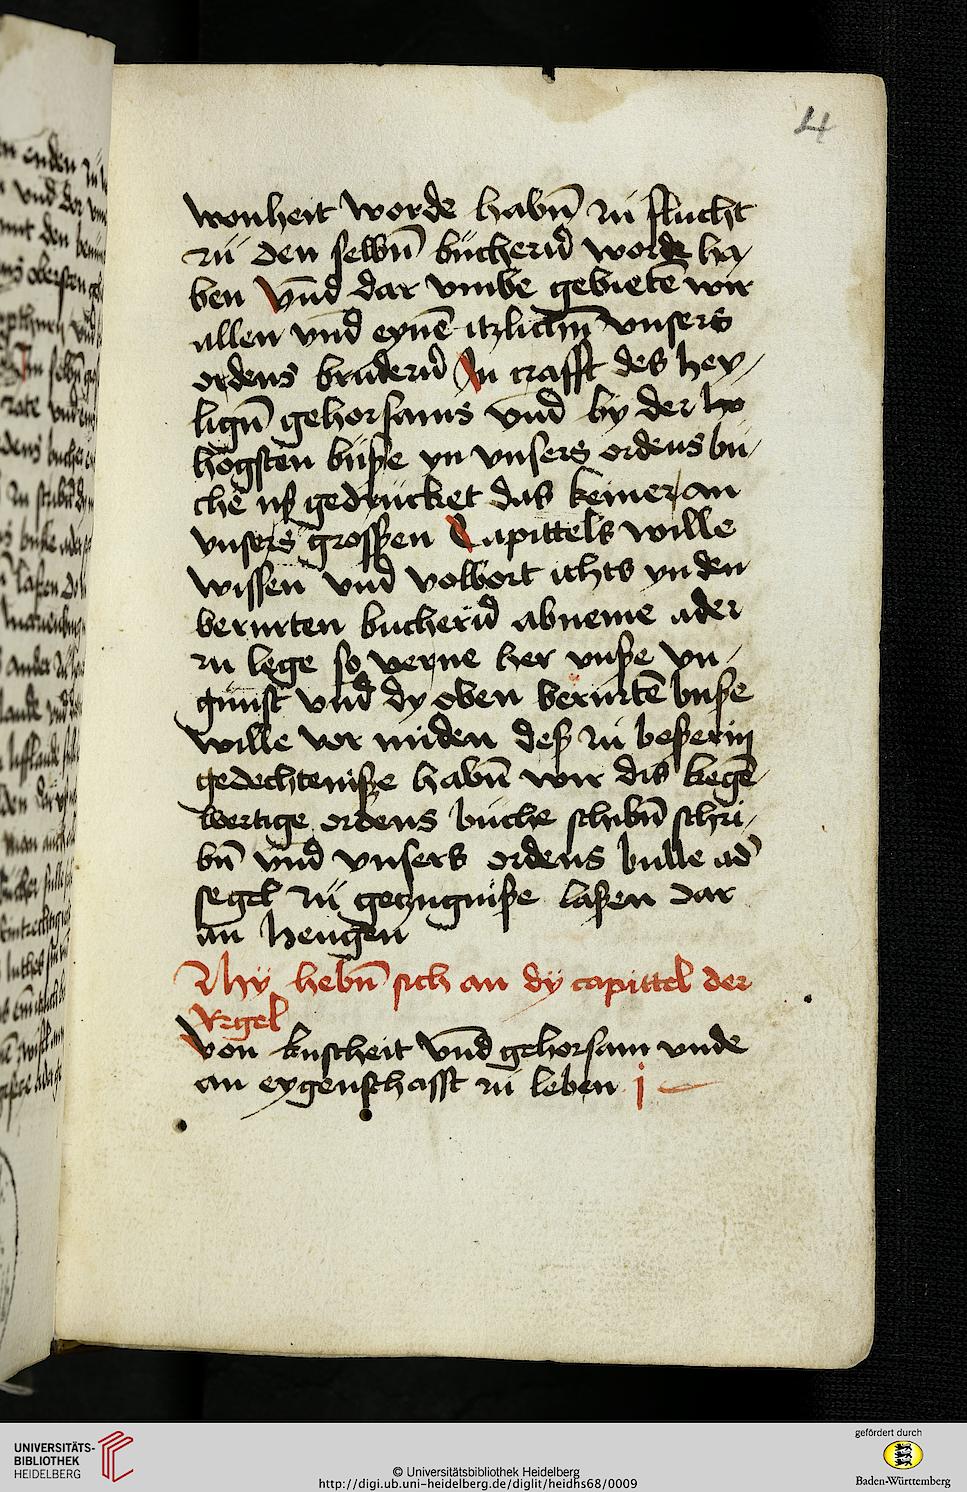 4
wonheit worde habn̄ zu flucht
zu den selbn̄ büchern̄ worde ha/
ben vnd dar vmbe gebietē wir
allen vnd eynē itzlichm̄ vnsers
ordens brudern̄ In crafft des hey/
lign̄ gehorsams vnd by der ho
hogsten busse yn vnsers ordens bu/
chē us gedrucket das keiner an
vnsers grossen Capittels wille
wissen vnd volbort ichts yn den
berurten buchern̄ abneme ader
zu lege so verne her vnsse vn/
gunst vnd dy oben berurtē busse
wille vor miden dess zu besserin
gedechtenisse habn̄ wir dis kegē/
wertige ordens buche schibn̄ schri/
bn̄ vnd vnsers ordens bulle ad'
segel zu getzugnisse lassen dar
an hengen
Hy hebn̄ sich an dy capittel der
Regel
Von kuscheit vnd gehorsam vnde
an eygenschafft zu leben j
UNIVERSITÄTS-
BIBLIOTHEK
HEIDELBERG
© Universitätsbibliothek Heidelberg
http://digi.ub.uni-heidelberg.de/diglit/heidhs68/0009
gefördert durch
Baden-Württemberg